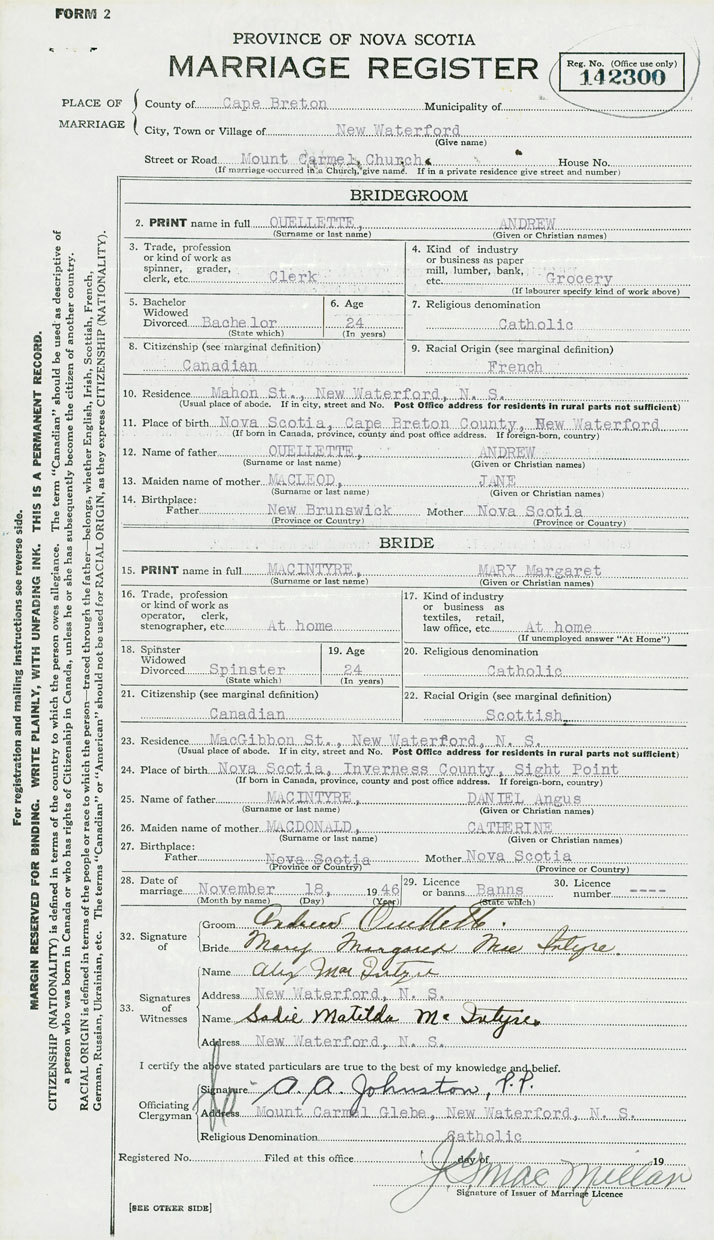 FORM 2
PROVINCE OF NOVA SCOTIA
MARRIAGE REGISTER
Reg. No. (Office use only)
142300
PLACE OF MARRIAGE
County of Cape Breton Municipality of
City, Town or Village of New Waterford
(Give name)
Street or Road Mount Carmel Church. House No.
(If marriage occurred in a Church, give name. If in a private residence give street and number)
BRIDEGROOM
2. PRINT name in full OUELLETTE, ANDREW
(Surname or last name) (Given or Christian names)
3. Trade, profession or kind of work as spinner, grader, clerk, etc. Clerk
4. Kind of industry or business as paper mill, lumber, bank, etc. Grocery
(If labourer specify kind of work above)
5. Bachelor Widowed Divorced Bachelor
(State which)
6. Age 24
(In years)
7. Religious denomination
Catholic
8. Citizenship (see marginal definition)
Canadian
9. Racial Origin (see marginal definition)
French
10. Residence Mahon St., New Waterford, N. S.
(Usual place of abode. If in city, street and No. Post Office address for residents in rural parts not sufficient)
11. Place of birth Nova Scotia, Cape Breton County, New Waterford
(If born in Canada, province, county and post office address. If foreign-born, country)
12. Name of father OUELLETTE, ANDREW
(Surname or last name) (Given or Christian names)
13. Maiden name of mother MACLEOD, JANE
(Surname or last name) (Given or Christian names)
14. Birthplace:
Father New Brunswick Mother Nova Scotia
(Province or Country) (Province or Country)
BRIDE
15. PRINT name in full MACINTYRE, MARY Margaret
(Surname or last name) (Given or Christian names)
16. Trade, profession or kind of work as operator, clerk, stenographer, etc At home
17. Kind of industry or business as textiles, retail, law office, etc. At home
(If unemployed answer "At Home")
18. Spinster Widowed Divorced Spinster
(State which)
19. Age 24
(In years)
20. Religious denomination
Catholic
21. Citizenship (see marginal definition)
Canadian
22. Racial Origin (see marginal definition)
Scottish
23. Residence MacGibbon St., New Waterford, N. S.
(Usual place of abode. If in city, street and No. Post Office address for residents in rural parts not sufficient)
24. Place of birth Nova Scotia, Inverness County, Sight Point
(If born in Canada, province, county and post office address. If foreign-born, country)
25. Name of father MACINTYRE, DANIEL Angus
(Surname or last name) (Given or Christian names)
26. Maiden name of mother MACDONALD, CATHERINE
(Surname or last name) (Given or Christian names)
27. Birthplace:
Father Nova Scotia Mother Nova Scotia
(Province or Country) (Province or Country)
28. Date of marriage November 18, 1946
(Month by name) (Day) (Year)
29. Licence or banns Banns
(State which)
30. Licence number ----
32. Signature of
Groom Andrew Ouellette.
Bride Mary Margaret Mac Intyre.
33. Signatures of Witnesses
Name Alex Mac Intyre
Address New Waterford, N. S.
Name Sadie Matilda Mc Intyre.
Address New Waterford, N. S.
I certify the above stated particulars are true to the best of my knowledge and belief.
Officiating Clergyman
Signature A. A. Johnston, P.P.
Address Mount Carmel Glebe, New Waterford, N. S.
Religious Denomination Catholic
Registered No. Filed at this office day of 19
J. S. Mac Millan
Signature of Issuer of Marriage Licence
[SEE OTHER SIDE]
For registration and mailing instructions see reverse side.
MARGIN RESERVED FOR BINDING. WRITE PLAINLY, WITH UNFADING INK. THIS IS A PERMANENT RECORD.
CITIZENSHIP (NATIONALITY) is defined in terms of the country to which the person owes allegiance. The term "Canadian" should be used as descriptive of
a person who was born in Canada or who has rights of Citizenship in Canada, unless he or she has subsequently become the citizen of another country.
RACIAL ORIGIN is defined in terms of the people or race to which the person—traced through the father—belongs, whether English, Irish, Scottish, French,
German, Russian, Ukrainian, etc. The terms "Canadian" or "American" should not be used for RACIAL ORIGIN, as they express CITIZENSHIP (NATIONALITY).